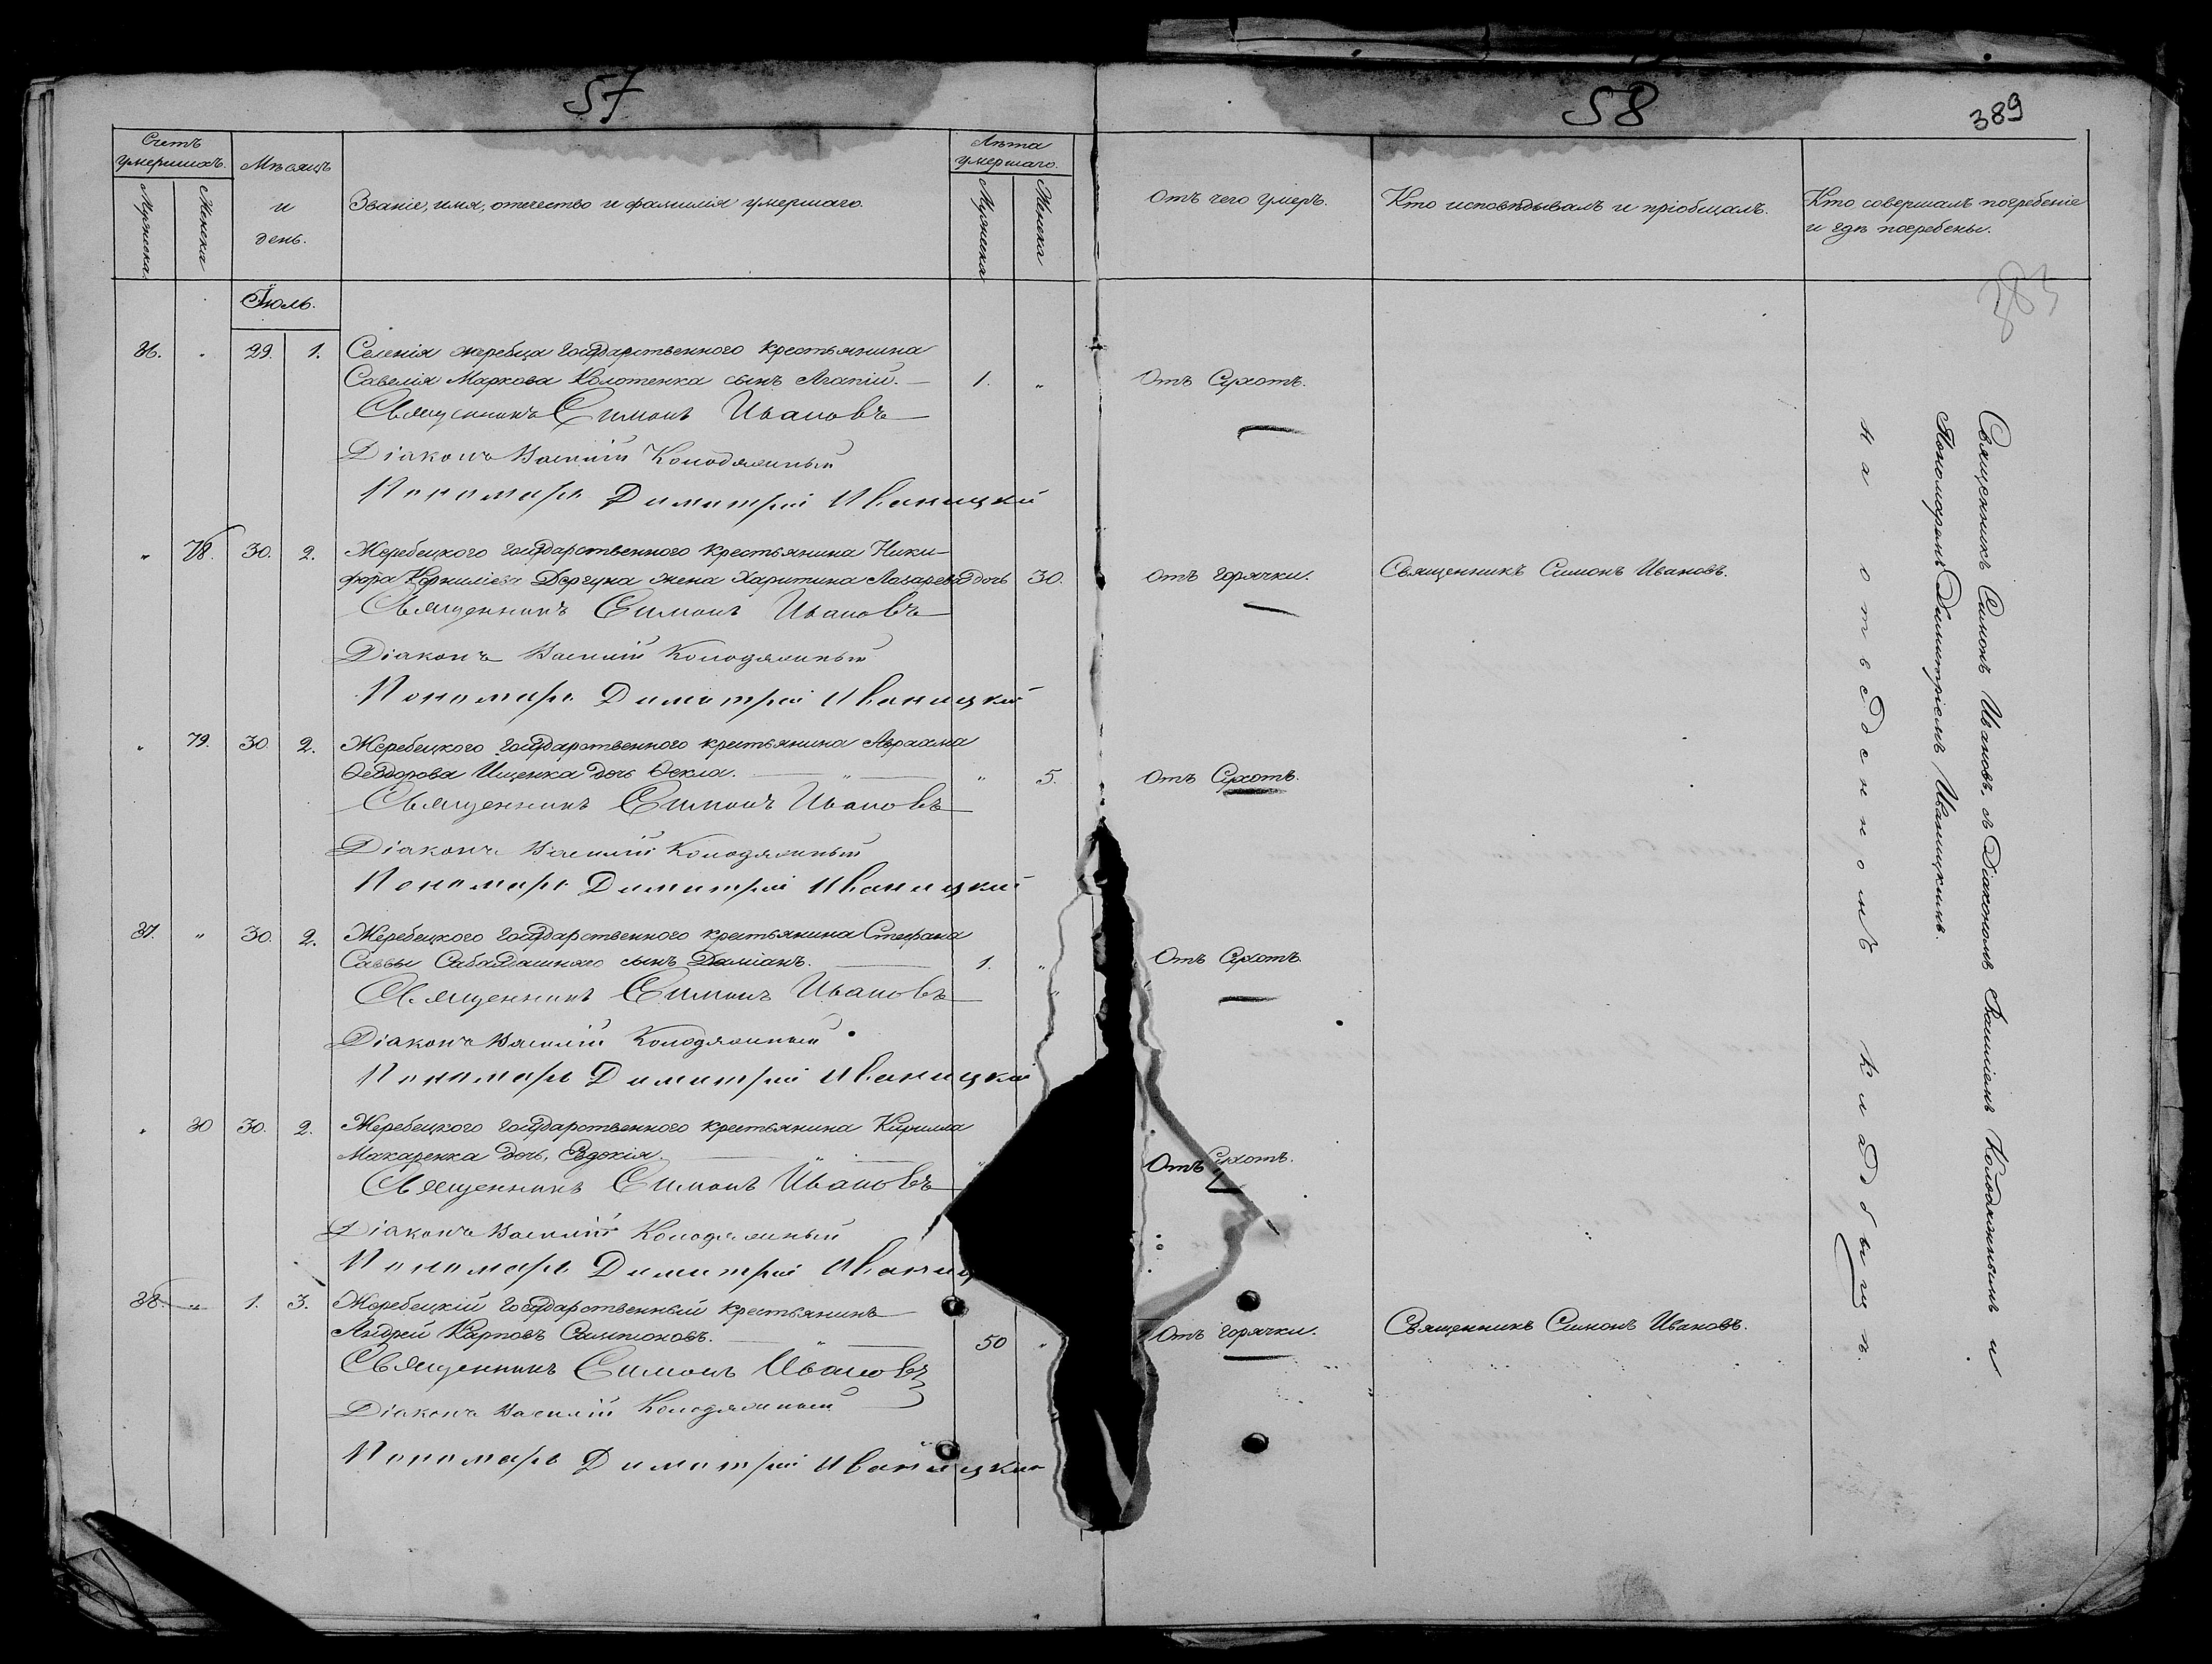 57
58
389
383
Счетъ умершихъ.
Мужеска.
Женска
Мѣсяцъ и день.
Званіе, имя, отечество и фамилія умершаго.
Лѣта умершаго.
Мужеска
Женска
Отъ чего умеръ.
Кто исповѣдывалъ и пріобщалъ.
Кто совершалъ погребеніе
и гдѣ погребены.
Іюль.
36. " 29. 1. Селенія жеребца государственного крестьянина
Савелія Маркова Колотенка сынъ Агапій. — 1. " Отъ Сухотъ.
Священникъ Симонъ Ивановъ
Діаконъ Василій Колодяжный
Пономарь Димитрій Иваницкій
" 78. 30. 2. Жеребецкого государственного крестьянина Ники-
фора Корниліева Дергуна жена Харитина Лазарева дочь 30. Отъ горячки. Священникъ Симонъ Ивановъ.
Священникъ Симонъ Ивановъ
Діаконъ Василій Колодяжный
Пономарь Димитрій Иваницкій
" 79. 30. 2. Жеребецкого государственного крестьянина Авраама
Ѳеодорова Ищенка дочь Ѳекла. — " — " 5. Отъ Сухотъ.
Священникъ Симонъ Ивановъ
Діаконъ Василій Колодяжный
Пономарь Димитрій Иваницкій
37. " 30. 2. Жеребецкого государственного крестьянина Стефана
Саввы сынъ Даміанъ. — 1. " Отъ Сухотъ.
Священникъ Симонъ Ивановъ
Діаконъ Василій Колодяжный
Пономарь Димитрій Иваницкій
" 30 30. 2. Жеребецкого государственного крестьянина Кирилла
Макаренка дочь, Евдокія. — " — " Отъ Сухотъ.
Священникъ Симонъ Ивановъ
Діаконъ Василій Колодяжный
Пономарь Димитрій Иваниц
38. " 1. 3. Жеребецкій государственный крестьянинъ
Андрей Карповъ Самсоновъ. — " — 50 " Отъ горячки. Священникъ Симонъ Ивановъ.
Священникъ Симонъ Ивановъ
Діаконъ Василій Колодяжный
Пономарь Димитрій Иваницкій
Священникъ Симонъ Ивановъ, съ Діакономъ Василіемъ Колодяжнымъ и
Пономаремъ Димитріемъ Иваницкимъ.
на отведенномъ кладбищѣ.